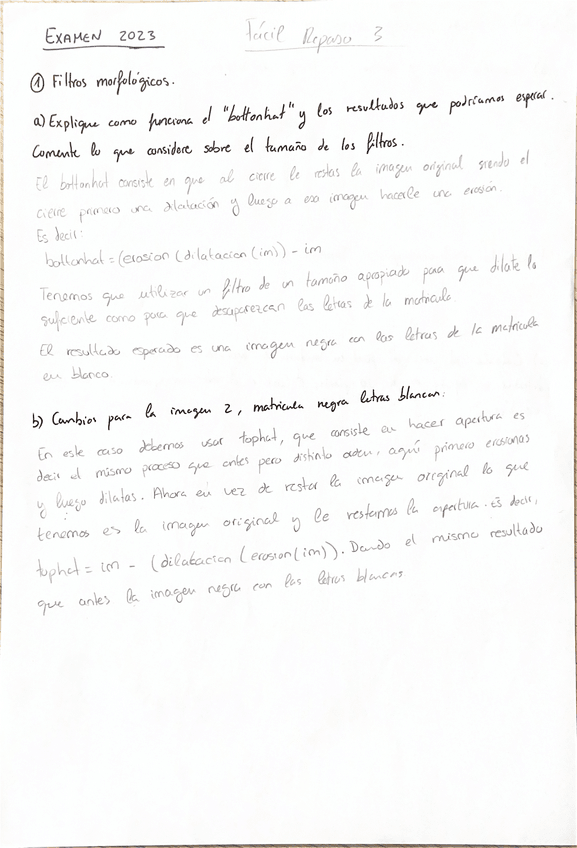 EXAMEN 2023
Fácil Repaso 3
① Filtros morfológicos.
a) Explique como funciona el "bottonhat" y los resultados que podríamos esperar.
Comente lo que considere sobre el tamaño de los filtros.
El bottonhat consiste en que al cierre le restas la imagen original siendo el
cierre primero una dilatación y luego a esa imagen hacerle una erosión.
Es decir:
bottonhat = (erosion (dilatacion (im)) - im
Tenemos que utilizar un filtro de un tamaño apropiado para que dilate lo
suficiente como para que desaparezcan las letras de la matricula
El resultado esperado es una imagen negra con las letras de la matricula
en blanco.
b) Cambios para la imagen 2, matricula negra letras blancas:
En este caso debemos usar tophat, que consiste en hacer apertura es
decir el mismo proceso que antes pero distinto orden, aquí primero erosionas
y luego dilatas. Ahora en vez de restar la imagen original lo que
tenemos es la imagen original y le restamos la apertura. Es decir,
tophat = im - (dilatacion (erosion (im)). Dando el mismo resultado
que antes la imagen negra con las letras blancas